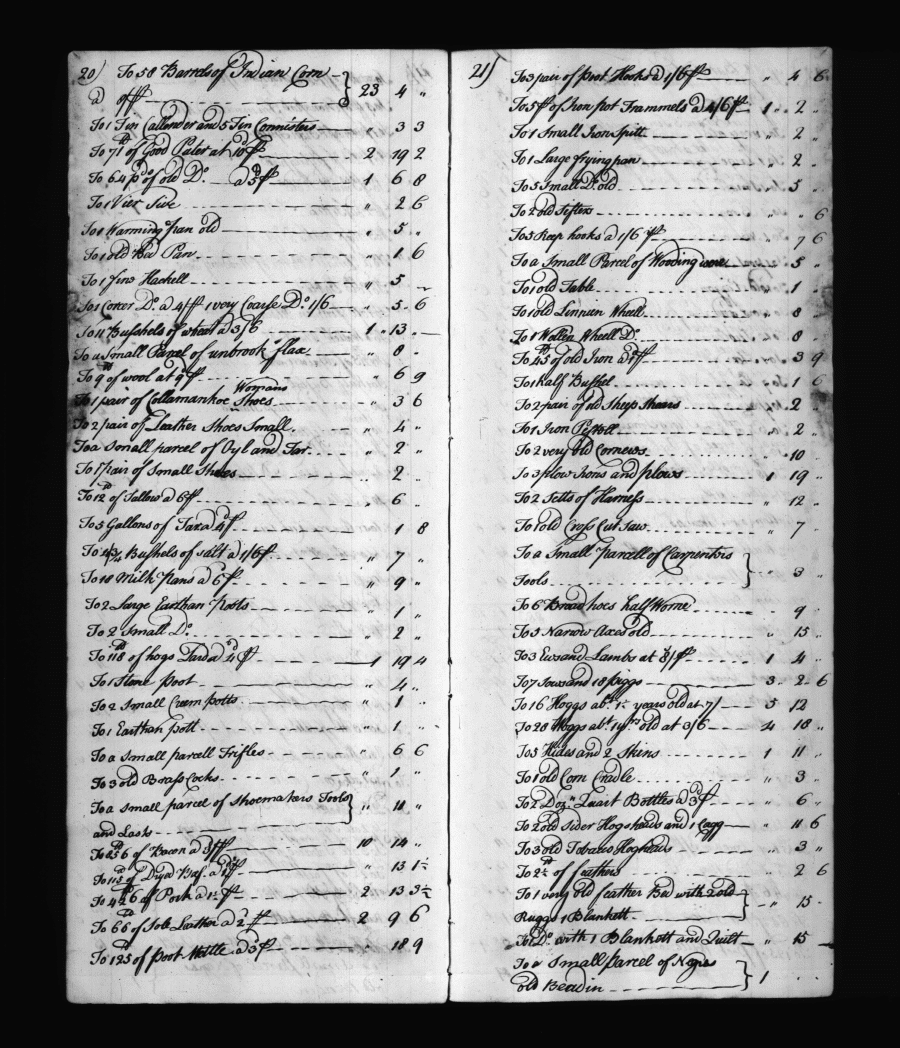 20) To 58 Barrels of Indian Corn
a 8/ff 23 4 "
To 1 Tin Callender and 5 Tin Connisters " 3 3
To 71 lb of Good Puter at 10d ff 2 19 2
To 64 pd of old Do. a 5d ff 1 6 8
To 1 Vier Sive " 2 6
To 1 Warming pan old " 5 "
To 1 old Bed Pan " 1 6
To 1 fine Hackell " 5 "
To 1 Corser Do. a 4/ff 1 very Coarse Do. 1/6 " 5 6
To 11 Bushels of wheat a 3/6 1 " 13 "
To a Small Parcel of unbrook flax " 8 "
To 9 lb of wool at 9d ff " 6 9
Womans
To 1 pair of Collamankoe Shoes " 3 6
To 2 pair of Leather Shoes Small " 4 "
To a Small parcel of Oyl and Tar " 2 "
To 1 pair of Small Shoes " 2 "
To 12 lb of Tallow a 6d ff " 6 "
To 5 Gallons of Tar a 4d ff 1 8
To 4 3/4 Bushels of salt a 1/6 ff " 7 "
To 18 Milk pans a 6d ff " 9 "
To 2 Large Earthan poots " 1 "
To 2 Small Do. " 2 "
To 118 lb of hogs Lard a 4d ff 1 19 4
To 1 Stone poot " 4 "
To 2 Small Creem potts " 1 "
To 1 Earthan pott " 1 "
To a Small parcell Trifles " 6 6
To 3 old Brass Cocks " 1 "
To a Small parcel of Shoemakers Tools
and Lasts " 10 "
To 856 lb of Bacon a 3d ff 10 14 "
To 115 lb of Dryd Beef " 13 1½
To 426 lb of Pork a 1½ ff 2 13 3½
To 66 lb of Sole Leather a 2 ff 2 9 6
To 125 lb of poot Mettle a 3d ff " 18 9
21) To 3 pair of poot Hooks a 1/6 ff " 4 6
To 5 ff of Iron pot Trammels a 4/6 ff 1 " 2 "
To 1 Small Iron Spitt " 2 "
To 1 Large frying pan " 2 "
To 5 Small Do. old " 5 "
To 2 old Sifters " " 6
To 5 Reep hooks a 1/6 ff " 7 6
To a Small Parcel of Wooding ware " 5 "
To 1 old Table " 1 "
To 1 old Linnun Wheell " 8
To 1 Wollen Wheell Do. " 8
To 45 lb of old Iron a 1d ff " 3 9
To 1 half Bushel " 1 6
To 2 pair of old Sheep Shears " 2 "
To 1 Iron Pestell " 2 "
To 2 very old Corneurs " 10
To 3 plow Irons and plows 1 19 "
To 2 Setts of Harness " 12 "
To 1 old Cross Cut Saw " 7 "
To a Small parcell of Carpenters
Tools " 3 "
To 6 Broad hoes half Worne " 9
To 5 Narrow Axes old " 15 "
To 3 Ews and Lambs at 8/ff 1 4 "
To 7 Sows and 18 piggs 3 2 6
To 16 Hoggs abt. 1½ years old at 7/ 5 12
To 28 Hoggs abt. 1 yrs old at 3/6 4 18 "
To 5 Hides and 2 Skins 1 11 "
To 1 old Corn Cradle " 3 "
To 2 Dozn. Quart Bottles a 3d ff " 6 "
To 2 old Sider Hogsheads and 1 Cagg " 11 6
To 3 old Tobaco Hogheads " 3 "
To 2½ lb of feathers " 2 6
To 1 very old feather Bed with 2 old
Ruggs 1 Blankett " 15 "
To 1 Do. with 1 Blankett and Quilt " 15
To a Small parcel of Negros
old Beadin 1 " "